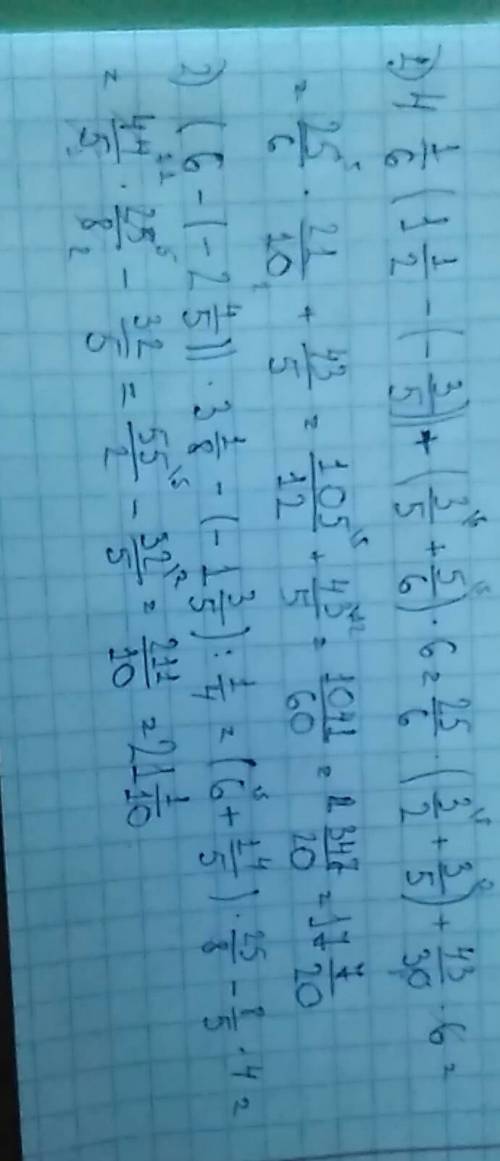 1) 4 1/6 (1 1/2 - (- 3/5)) + (3/5 + 5/6) · 6 = 25/6 · (3/2 + 3/5) + 43/30 · 6 =
= 25/6 · 21/10 + 43/5 = 105/12 + 43/5 = 1041/60 = 347/20 = 17 7/20
2) (6 - (- 2 4/5)) · 3 1/8 - (- 1 3/5) : 1/4 = (6 + 14/5) · 25/8 - 8/5 · 4 =
= 44/5 · 25/8 - 32/5 = 55/2 - 32/5 = 211/10 = 21 1/10